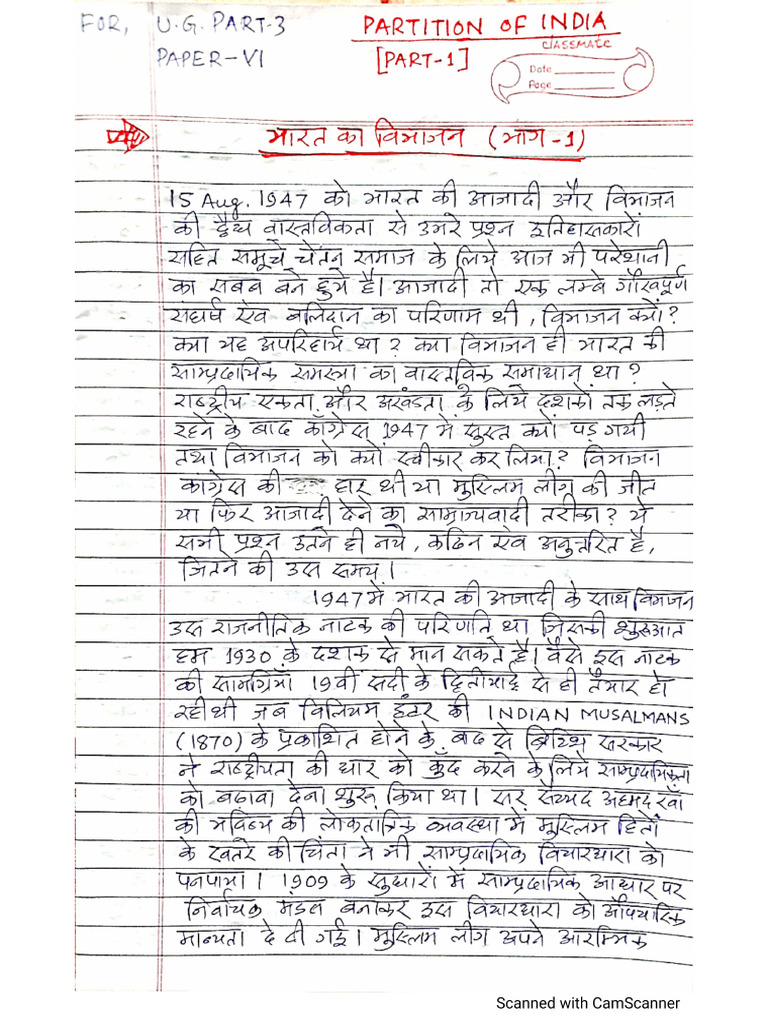 FOR, U.G. PART-3
PARTITION OF INDIA
PAPER-VI
[PART-1]
classmate
Date
Page
भारत का विभाजन (भाग-1)
15 Aug. 1947 को भारत की आजादी और विभाजन
की द्वैध वास्तविकता से उभरे प्रश्न इतिहासकारों
सहित समूचे चेतन समाज के लिये आज भी परेशानी
का सबब बने हुये है। आजादी तो एक लम्बे गौरवपूर्ण
संघर्ष एंव बलिदान का परिणाम थी, विभाजन क्यों?
क्या यह अपरिहार्य था? क्या विभाजन ही भारत की
साम्प्रदायिक समस्या का वास्तविक समाधान था?
राष्ट्रीय एकता और अखंडता के लिये दशकों तक लड़ते
रहने के बाद काँग्रेस 1947 में सुस्त क्यों पड़ गयी
तथा विभाजन को क्यों स्वीकार कर लिया? विभाजन
कांग्रेस की हार थी या मुस्लिम लीग की जीत
या फिर आजादी देने का साम्राज्यवादी तरीका? ये
सभी प्रश्न उतने ही नये, कठिन एंव अनुत्तरित है,
जितने की उस समय।
1947 में भारत की आजादी के साथ विभाजन
उस राजनीतिक नाटक की परिणति था जिसकी शुरुआत
हम 1930 के दशक से मान सकते है। वैसे इस नाटक
की सामग्रियाँ 19वीं सदी के द्वितीयार्द्ध से ही तैयार हो
रही थी जब विलियम हंटर की INDIAN MUSALMANS
(1870) के प्रकाशित होने के बाद से ब्रिटिश सरकार
ने राष्ट्रीयता की धार को कुँद करने के लिये साम्प्रदायिकता
को बढ़ावा देना शुरू किया था। सर सैय्यद अहमद खाँ
की भविष्य की लोकतांत्रिक व्यवस्था में मुस्लिम हितों
के खतरे की चिंता ने भी साम्प्रदायिक विचारधारा को
पनपाया। 1909 के सुधारों में साम्प्रदायिक आधार पर
निर्वाचक मंडल बनाकर इस विचारधारा को औपचारिक
मान्यता दे दी गई। मुस्लिम लीग अपने आरम्भिक
Scanned with CamScanner